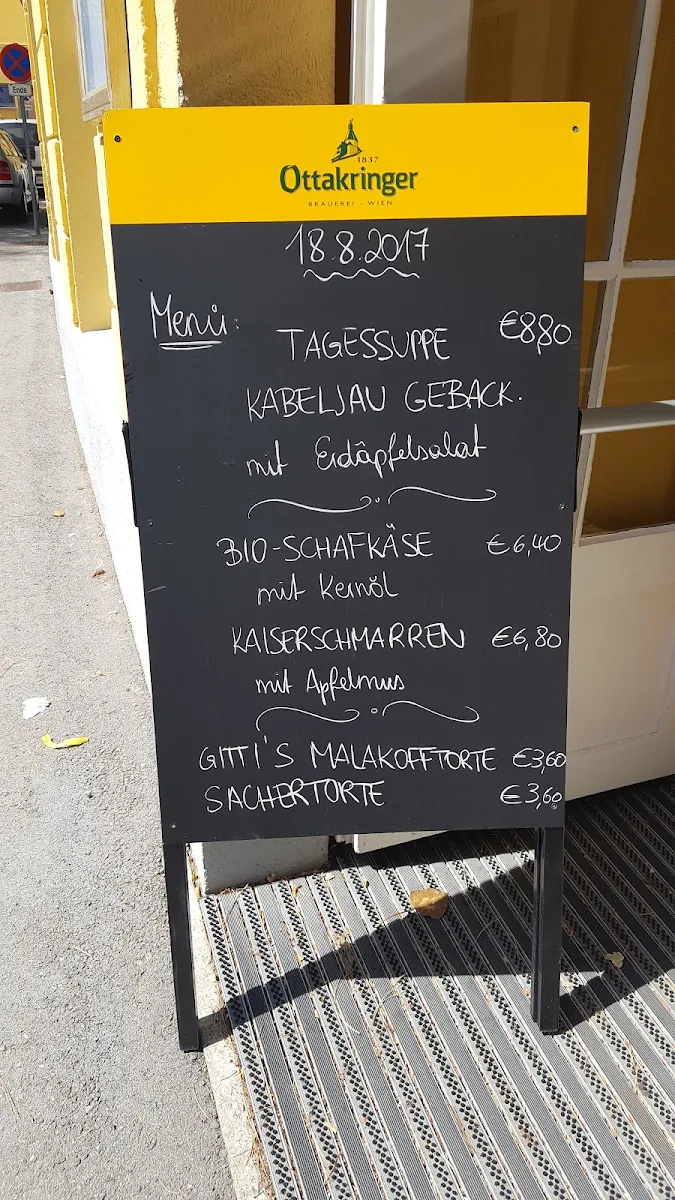 Ende
1837
Ottakringer
BRAUEREI - WIEN
18.8.2017
Menü:
TAGESSUPPE €8,80
KABELJAU GEBACK.
mit Erdäpfelsalat
BIO-SCHAFKÄSE €6,40
mit Kernöl
KAISERSCHMARREN €6,80
mit Apfelmus
GITTI'S MALAKOFFTORTE €3,60
SACHERTORTE €3,60